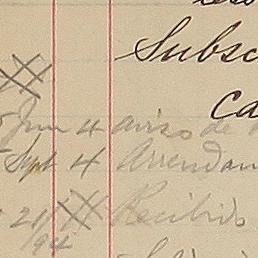 Subsc
ca
Jun 4 aviso de
Sept 4 Arrendam
21 Recibido
/94